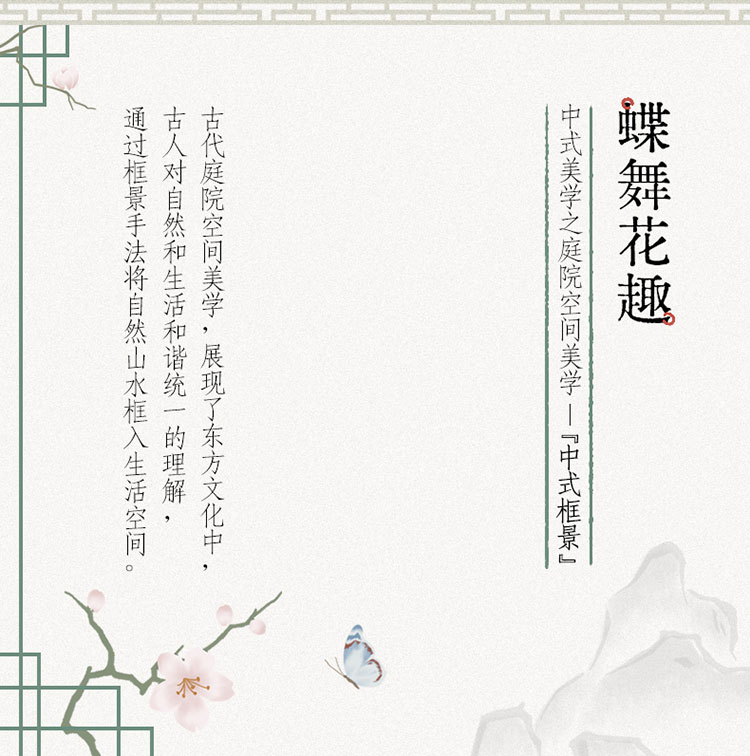 蝶舞花趣
中式美学之庭院空间美学—『中式框景』
古代庭院空间美学，展现了东方文化中，
古人对自然和生活和谐统一的理解，
通过框景手法将自然山水框入生活空间。